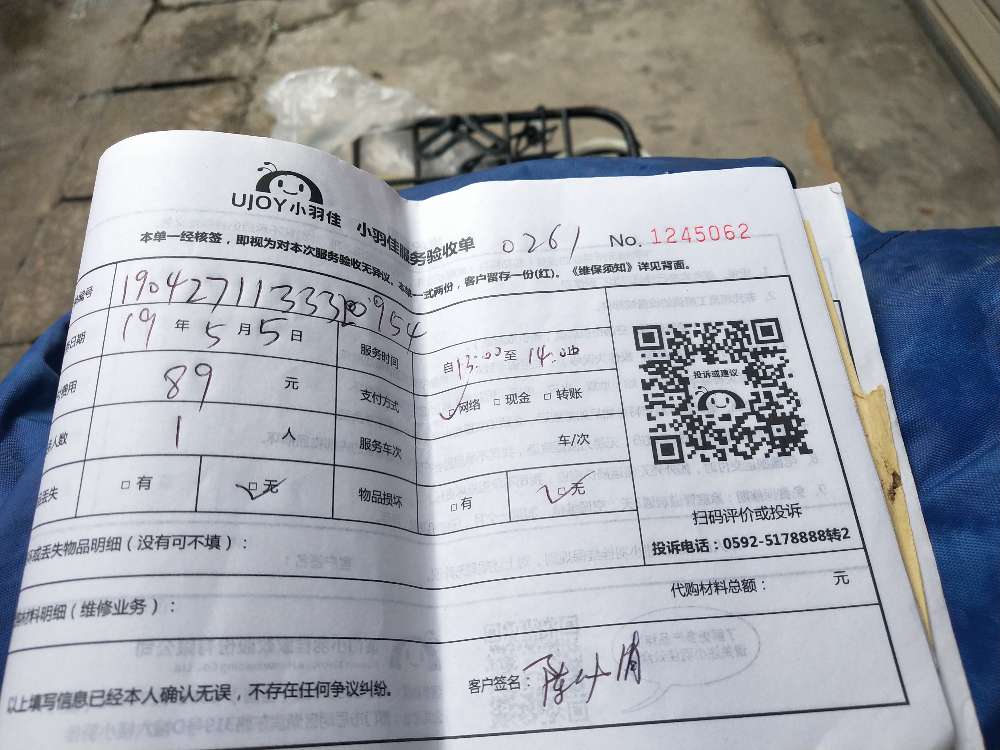 UJOY小羽佳 小羽佳服务验收单 0261 No. 1245062
本单一经核签，即视为对本次服务验收无异议。本单一式两份，客户留存一份(红)。《维保须知》详见背面。
编号
日期 19 年 5 月 5 日 服务时间 自 13:00 至 14:00
费用 89 元 支付方式 网络 现金 转账
人数 1 人 服务车次 车/次
丢失 有 无 物品损坏 有 无
投诉或建议
扫码评价或投诉
投诉电话：0592-5178888转2
或丢失物品明细（没有可不填）：
材料明细（维修业务）： 代购材料总额： 元
以上填写信息已经本人确认无误，不存在任何争议纠纷。 客户签名：